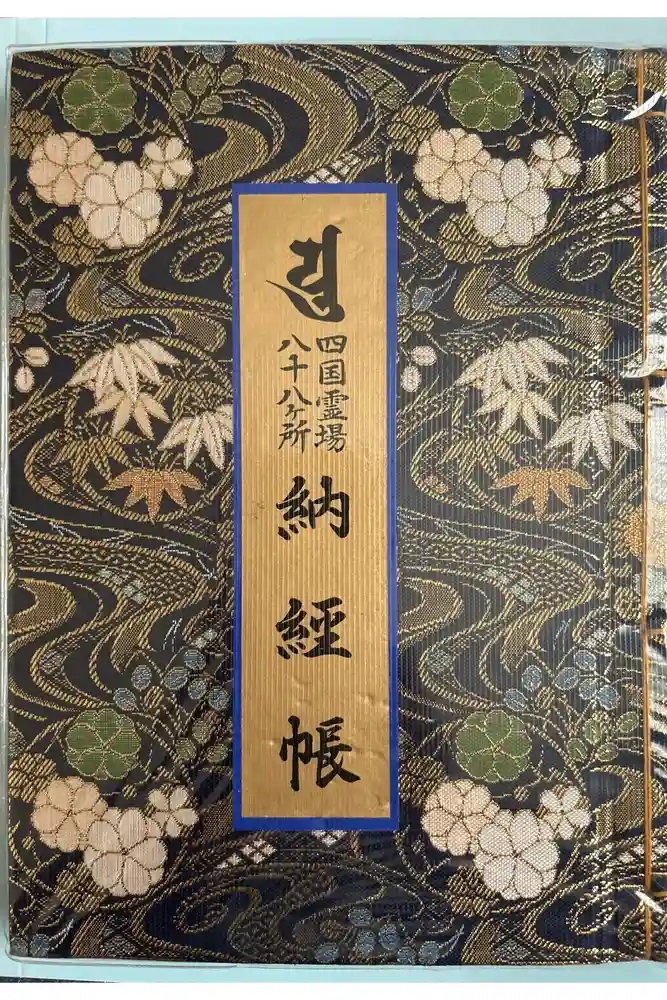 四国霊場
八十八ヶ所
納経帳